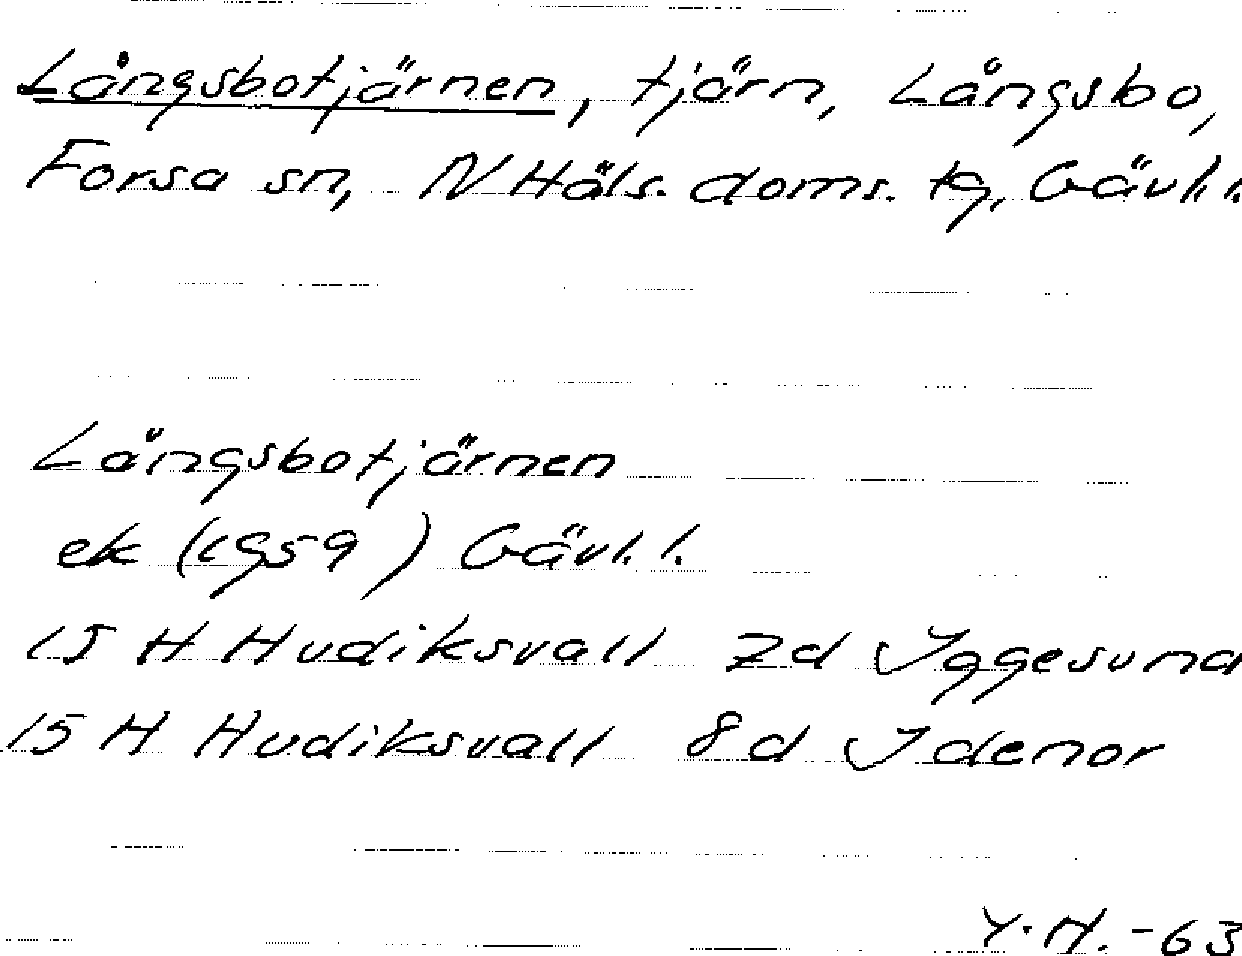 Långsbotjärnen, tjärn, Långsbo,
Forsa sn, N Häls. doms. tg, Gävl. l.
Långsbotjärnen
ek (1959) Gävl. l.
15 H Hudiksvall 7d Iggesund
15 H Hudiksvall 8d Idenor
Y. H. -63